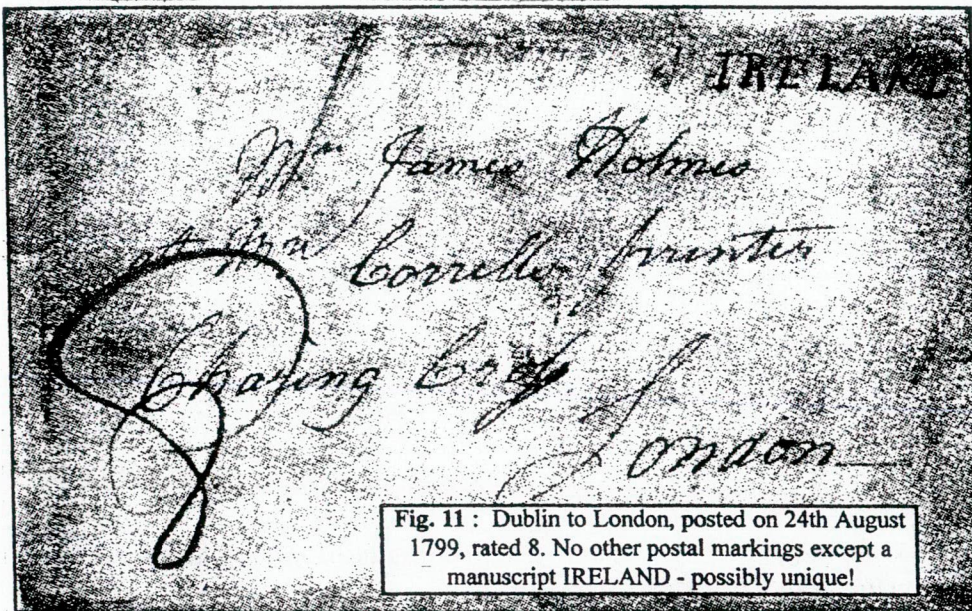 IRELAND
Mr James Holmes
at Mrs Corrells, printer
Charing Cross
London
8
Fig. 11 : Dublin to London, posted on 24th August
1799, rated 8. No other postal markings except a
manuscript IRELAND - possibly unique!